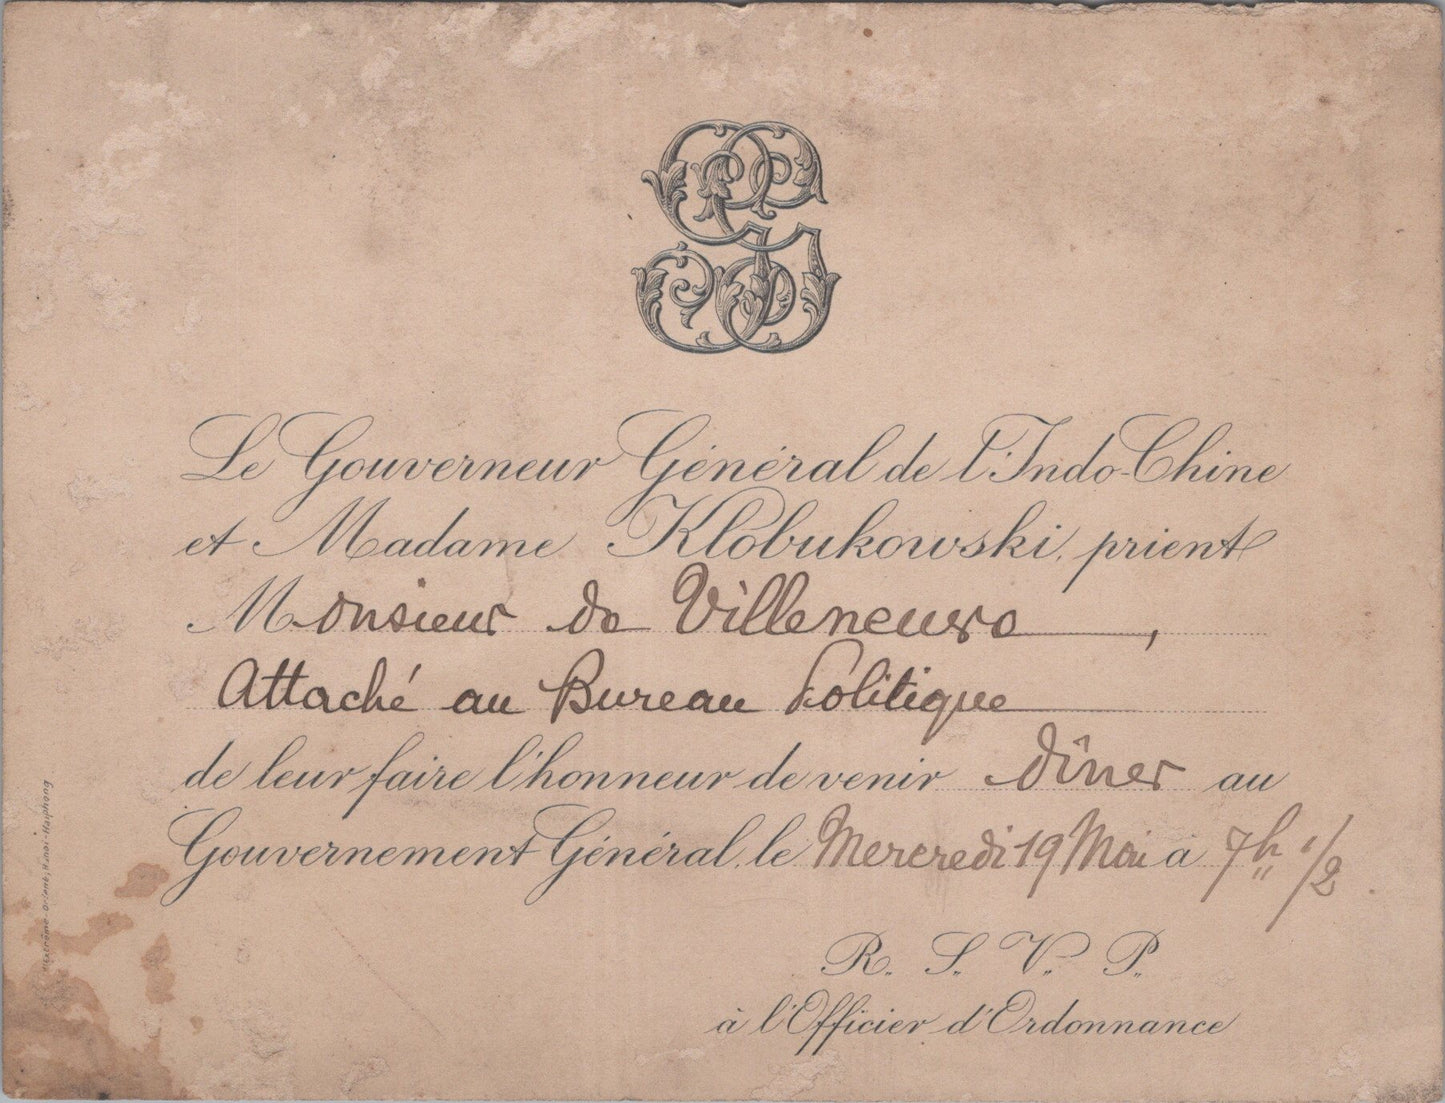 Le Gouverneur Général de l'Indo-Chine
et Madame Klobukowski, prient
Monsieur de Villeneuve,
Attaché au Bureau Politique
de leur faire l'honneur de venir dîner au
Gouvernement Général, le Mercredi 19 Mai à 7h 1/2
R. S. V. P.
à l'Officier d'Ordonnance
Extrême-Orient, Hanoi-Haiphong